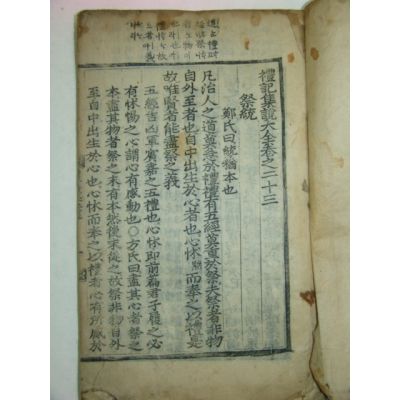 禮記集說大全卷之二十三
祭統
鄭氏曰統猶本也
凡治人之道莫急於禮禮有五經莫重於祭夫祭者非物
自外至者也自中出生於心者也心怵而奉之以禮是
故唯賢者能盡祭之義
五經吉凶軍賓嘉之五禮也心怵即前篇君子履之必
有怵惕之心謂心有感動也○方氏曰盡其心者祭之
本盡其物者祭之末有本然後末從之故祭非物自外
至自中出生於心也心怵而奉之以禮者心有所感於